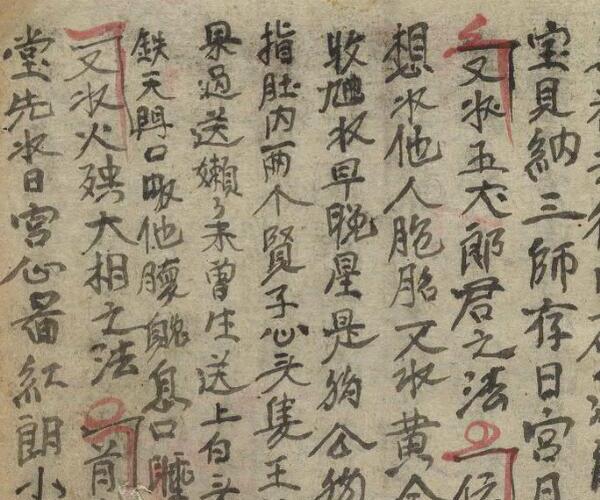 宝見納三師存日宮月
又收五犬郎君之法
想收他人胞胎又收黄
收他收早晚星是狗公狗
指肚内兩个賢子心头隻王
果過送嬾〻未曾生送上白头
鉄天門口吸他膿䰟息口
又收火殃大相之法 前
堂先收日宮仙番紅朗小